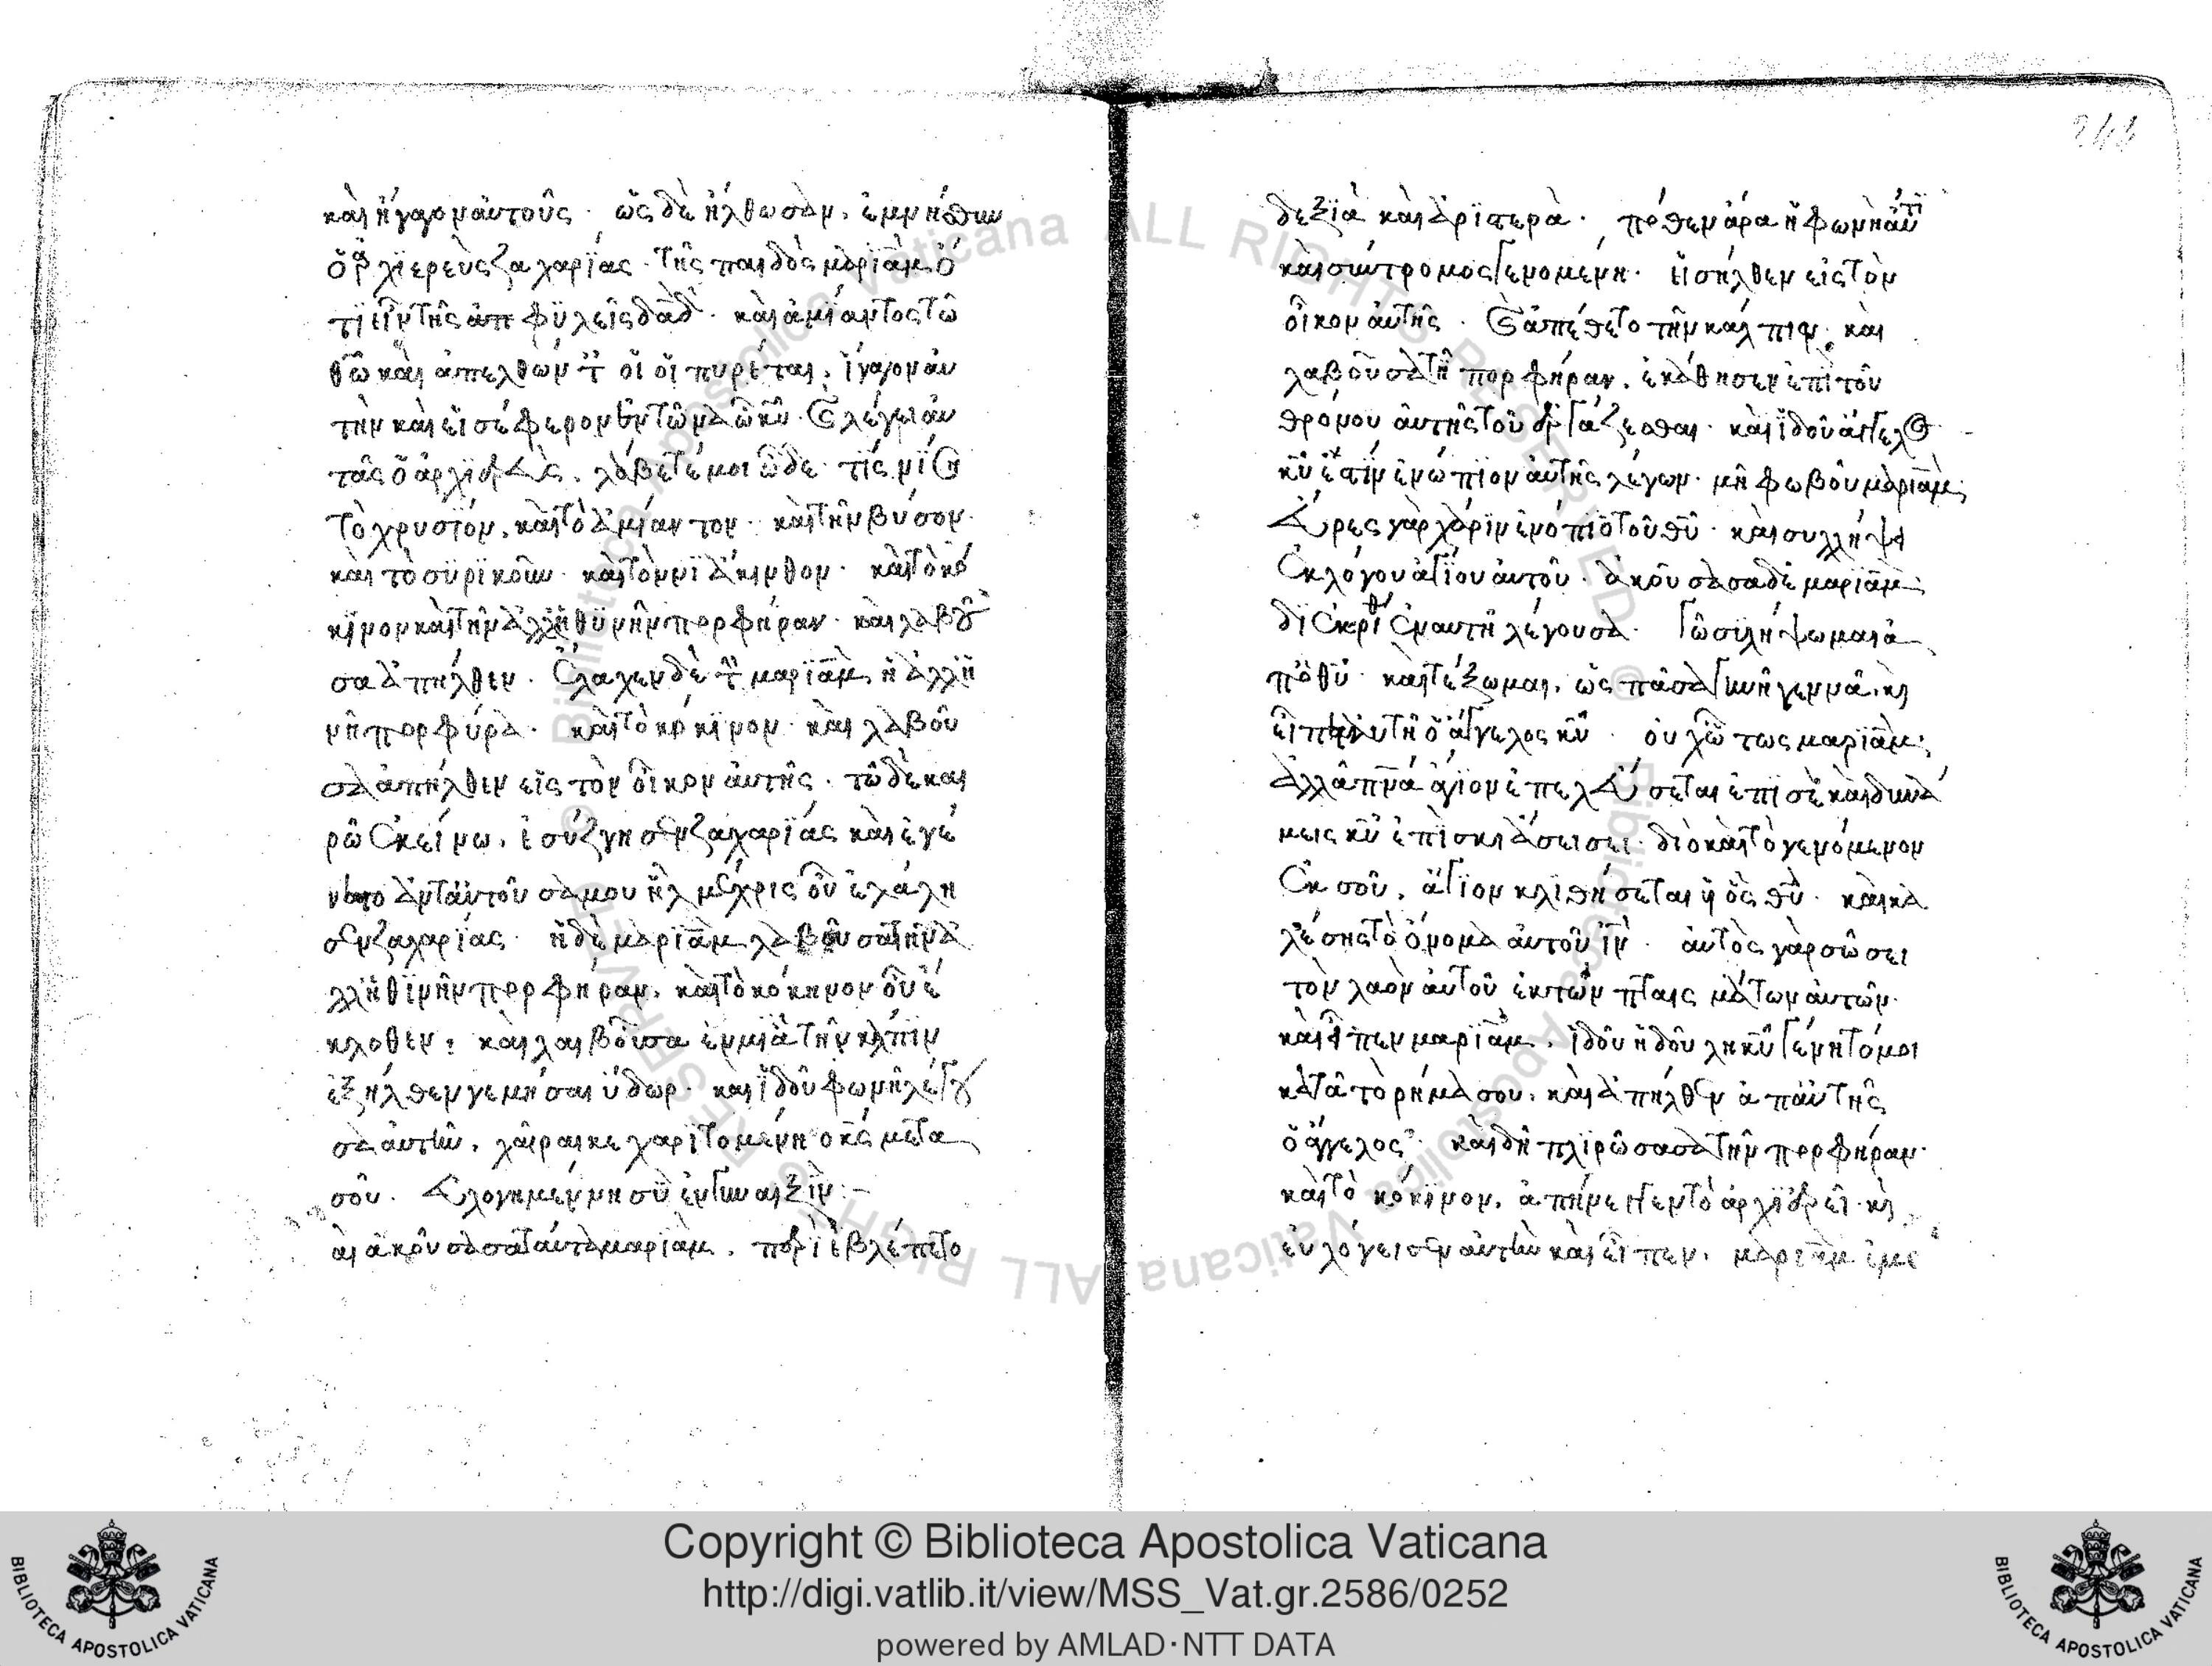 καὶ ἤγαγον αὐτοὺς · ὡς δὲ ἤλθωσαν, ἐμνήσθην
ὁ ἀρχϊερεὺς ζαχαρίας · τῆς παιδὸς μαρϊὰμ ὅ
τι ἦν τῆς ἀπ φϋλεῖς δαδ · καὶ ἀμίαντος τῶ
θῶ καὶ ἀπελθὼν τ οἱ οἱ πυρέται, ἴγαγον αυ
τὴν καὶ εἰσέφερον ἐν τῶ ναῶ κυ · καὶ λέγει αυ
τὰς ὁ ἀρχϊερεὺς, λάβετέ μοι ὧδε · τίς νίσει
τὸ χρυσίον, καὶ τὸ ἀμίαντον · καὶ τὴν βύσον ·
καὶ τὸ σϋρϊκοῦν · καὶ τὸν νϊάκινθον · καὶ τὸ κό
κϊνον καὶ τὴν ἀλλϊθϋνὴν πορφήραν · καὶ λαβοῦ
σα ἀπήλθεν · ἔλαχεν δὲ τ μαρϊὰμ ἡ ἀλλϊ
νὴ πορφύρα · καὶ τὸ κόκινον · καὶ λαβοῦ
σα ἀπήλθεν εἰς τὸν οἶκον αὐτῆς · τῶ δὲ και
ρῶ ἐκείνω, ἐσύζγησεν ζαχαρίας καὶ ἐγέ
νετο ἀντ αὐτοῦ σαμουὴλ μέχρις οὗ ἐλάλη
σεν ζαχαρίας · ἡ δὲ μαρϊὰμ λαβοῦσα τὴν ἀ
λλϊθϊνὴν πορφήραν, καὶ τὸ κόκηνον οὗ ἐ
κλοθεν : καὶ λαιβοῦσα ἐν μιᾶ τὴν κλπϊν
ἐξήλθεν γεμήσαι ὕδωρ · καὶ ἰδοῦ φωνὴ λέγου
σα αὐτὴν, χαῖραι κε χαρϊτομένη ο κς μετα
σοῦ · εὐλογημένη σὺ ἐν γυναιξίν :–
αι ἀκοῦσασα ταῦτα μαρϊὰμ, περϊ ἐβλέπετο
δεξϊὰ καὶ ἀρϊστερὰ · πόθεν ἄρα ἡ φωνὴ αὕτη
καὶ σύντρομος γενομένη · εἰσήλθεν εἰς τὸν
οἶκον αὐτῆς · καὶ ἀπέθετο τὴν κάλπιν, καὶ
λαβοῦσα τὴ πορφήραν, ἐκάθησεν ἐπὶ τοῦ
θρόνου αὐτῆς τοῦ ἐργάζεσθαι · καὶ ϊδοῦ ἄγγελος
κυ ἔστϊν ἐνώπϊον αὐτῆς λέγων · μὴ φωβοῦ μαριὰμ ·
εὗρες γὰρ χάρϊν ἐνόπιο τοῦ θυ · καὶ συλλήψι
ἐκ λόγου ἁγίου αὐτοῦ · ἀκοῦσασα δὲ μαριὰμ
δϊεκρίθη ἐν αυτῆ λέγουσα · γῶ σιλήψωμαι ἀ
πὸ θυ · καὶ τέξωμαι, ὡς πᾶσα γυνὴ γεννᾶ, κὶ
εἶπεν αὐτῆ ὁ ἄγγελος κυ · οὐχ οὕτως μαρϊὰμ ·
ἀλλὰ πνα ἅγϊον ἐπελεύσεται ἐπὶ σὲ καὶ δυνά
μεις κυ ἐπϊσκιάσει σει · διὸ καὶ τὸ γενόμενον
ἐκ σοῦ, ἅγϊον κλιθήσεται ὑὸς θυ · καὶ κα
λέσης τὸ ὄνομα αὐτοῦ ἰν · αὐτὸς γὰρ σώσει
τὸν λαὸν αὐτοῦ ἐκ τῶν πταις μάτων αὐτῶν ·
καὶ εἶπεν μαρϊὰμ, ϊδοῦ ἡ δοῦλη κυ γένητό μοι
κατὰ τὸ ρήμα σου, καὶ ἀπήλθεν ἀπ αὐτῆς
ὁ ἄγγελος · καὶ δὴ πλϊρῶσασα τὴν πορφήραν ·
καὶ τὸ κόκϊνον, ἀπήνεγγεν τὸ ἀρχϊερεῖ · κὶ
εὐλόγεισεν αὐτὴν καὶ εἶπεν, μαριὰμ ἐμε
Copyright © Biblioteca Apostolica Vaticana
http://digi.vatlib.it/view/MSS_Vat.gr.2586/0252
powered by AMLAD·NTT DATA
BIBLIOTECA APOSTOLICA VATICANA
BIBLIOTECA APOSTOLICA VATICANA